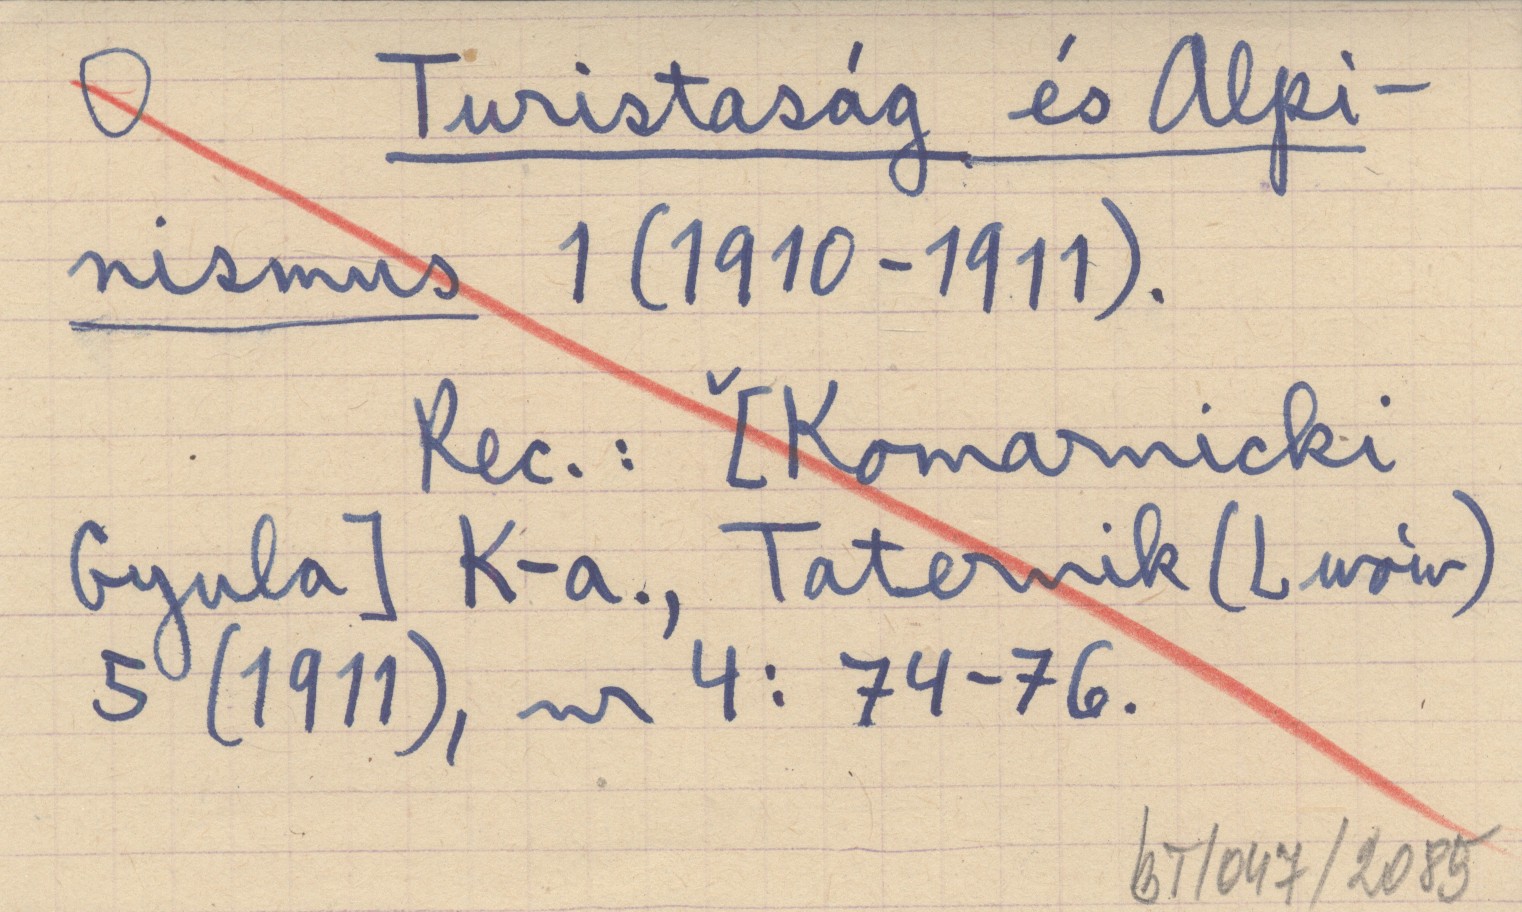 O Turistaság és Alpi-
nizmus 1 (1910-1911).
Rec.: [Komarnicki
Gyula] K-a., Taternik (Lwów)
5 (1911), nr 4: 74-76.
bT/047/2085